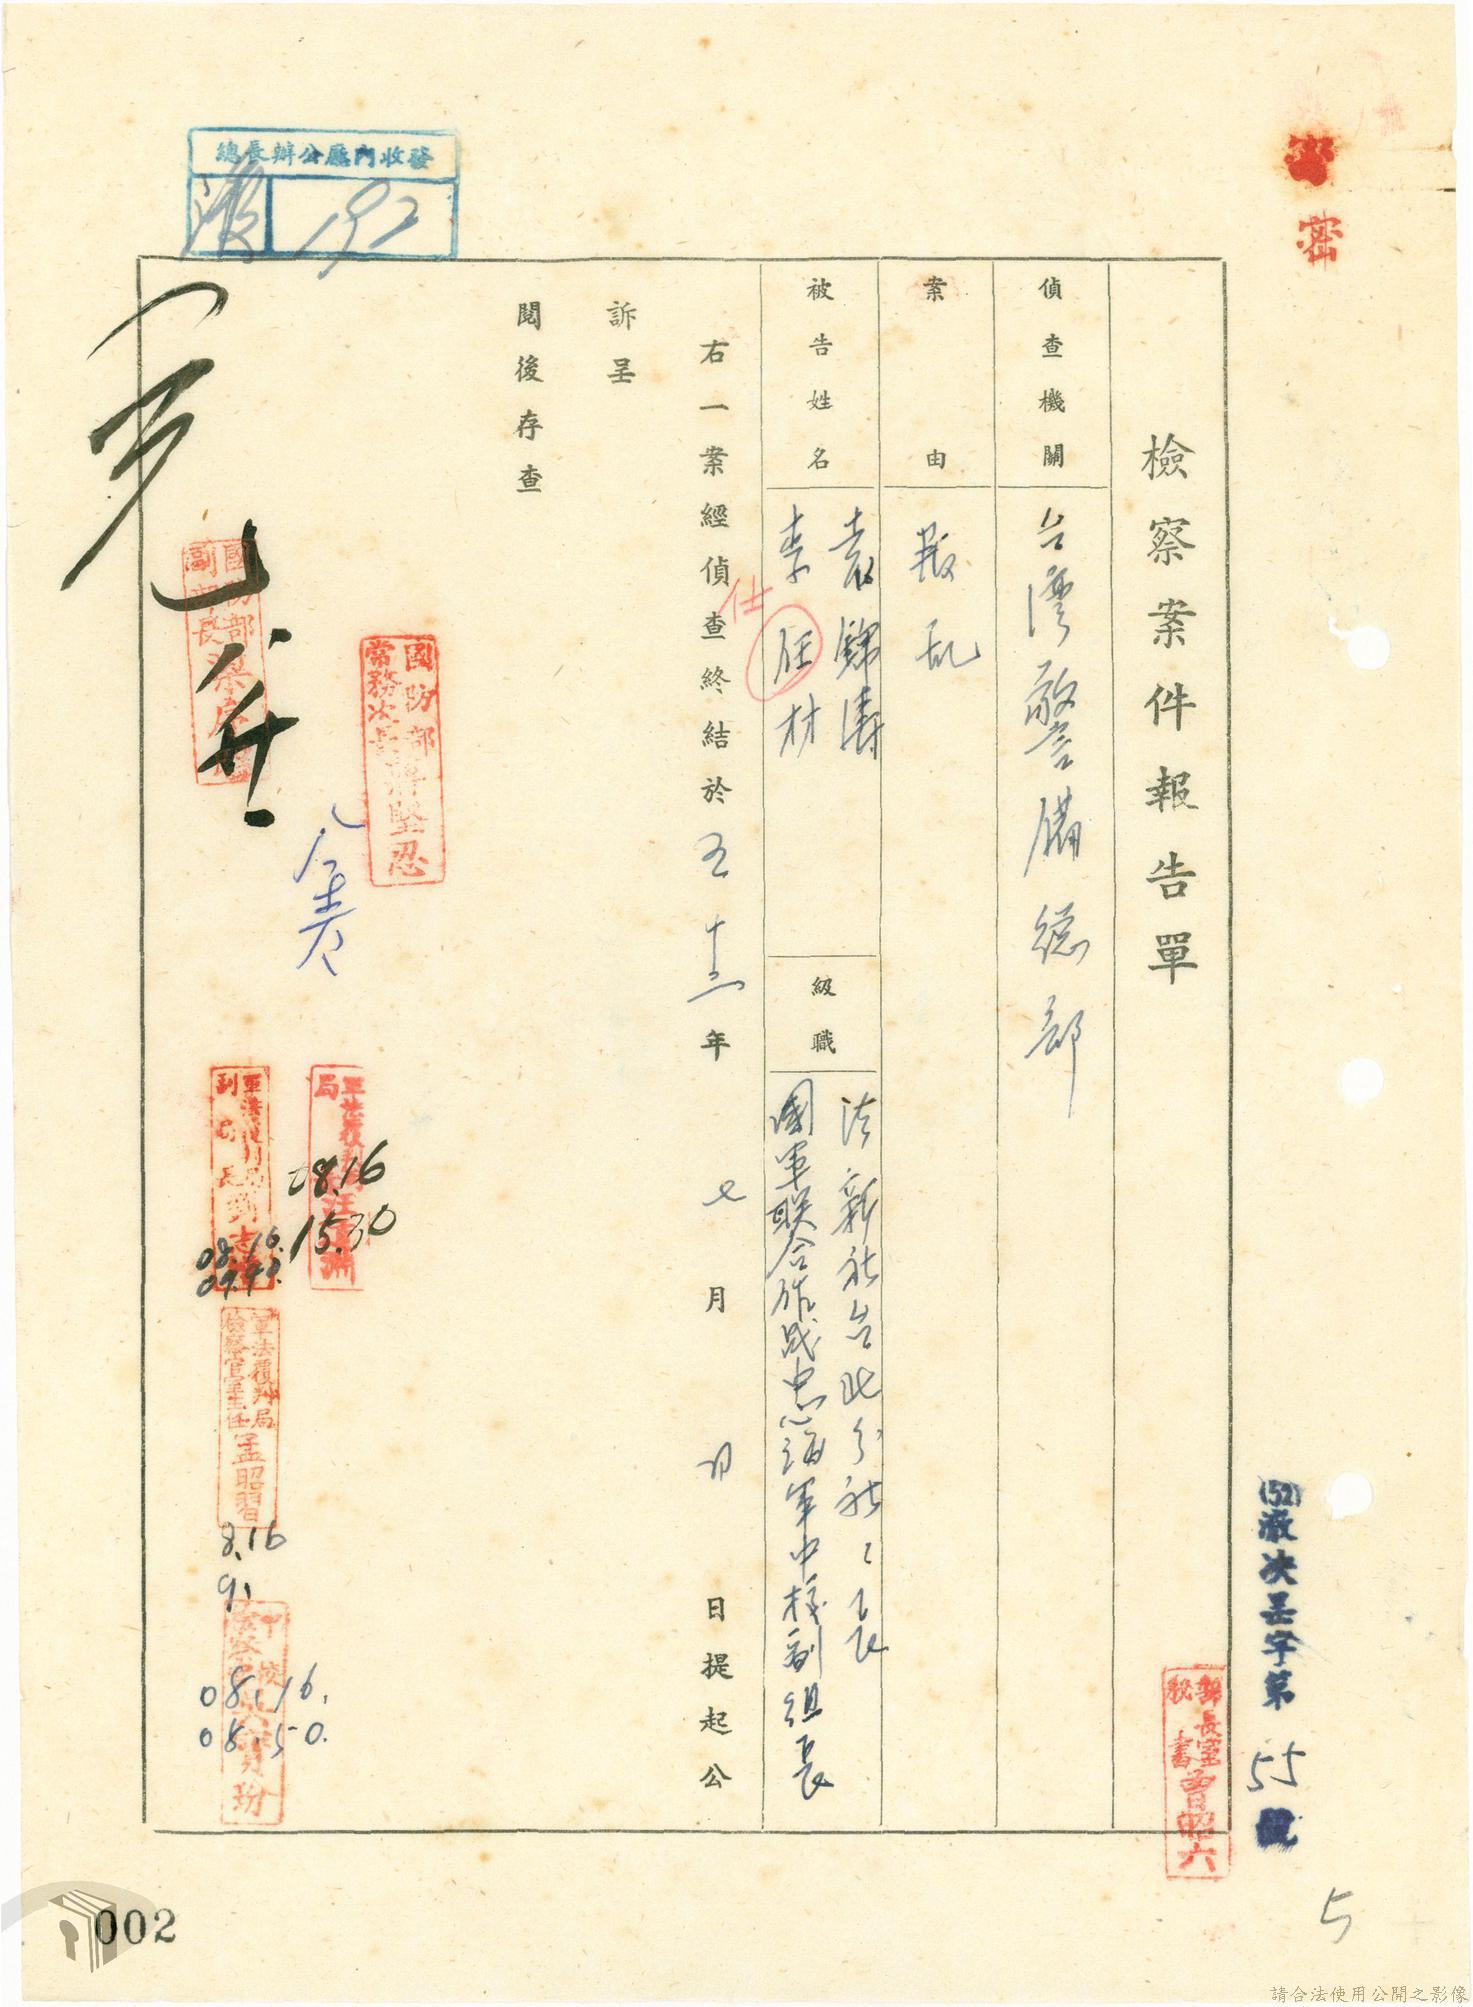 密
檢察案件報告單
偵查機關
台灣警備總部
案由
叛乱
被告姓名
袁錦濤
李任材
仕
級職
法新社台北分社〻長
國軍联合作战中心海軍中校副組長
右一案經偵查終結於五十二年七月 日提起公
訴呈
閱後存查
總長辦公廳內收發
192
國防部
常務次長蔣堅忍
國防部
副部長梁序昭
軍法覆判局
局
汪
08.16
15.30
軍法覆判局
副局長
劉志
08.16.
09.40.
軍法覆判局
檢察官室主任
孟昭習
8.16
9.
中校
08.16.
08.50.
(52)澈決呈字第55號
部長室
秘書
曾昭六
5
002
請合法使用公開之影像